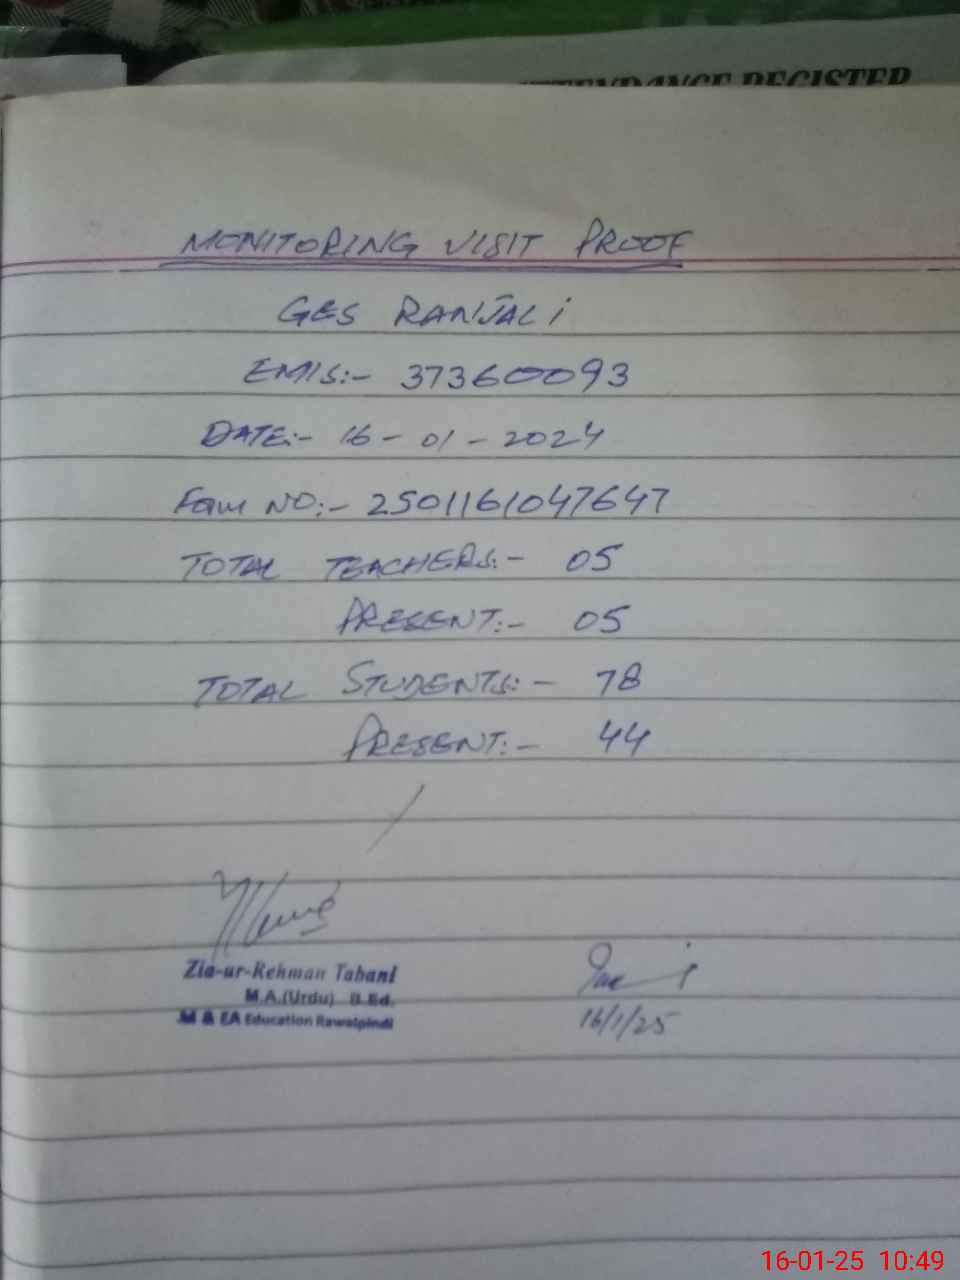 ATTENDANCE REGISTER
MONITORING VISIT PROOF
GES RANJALI
EMIS:- 37360093
DATE:- 16-01-2024
Form NO:- 2501161047647
TOTAL TEACHERS:- 05
PRESENT:- 05
TOTAL STUDENTS:- 78
PRESENT:- 44
Zia-ur-Rehman Tabani
M.A.(Urdu) B.Ed.
M & EA Education Rawalpindi
16/1/25
16-01-25 10:49